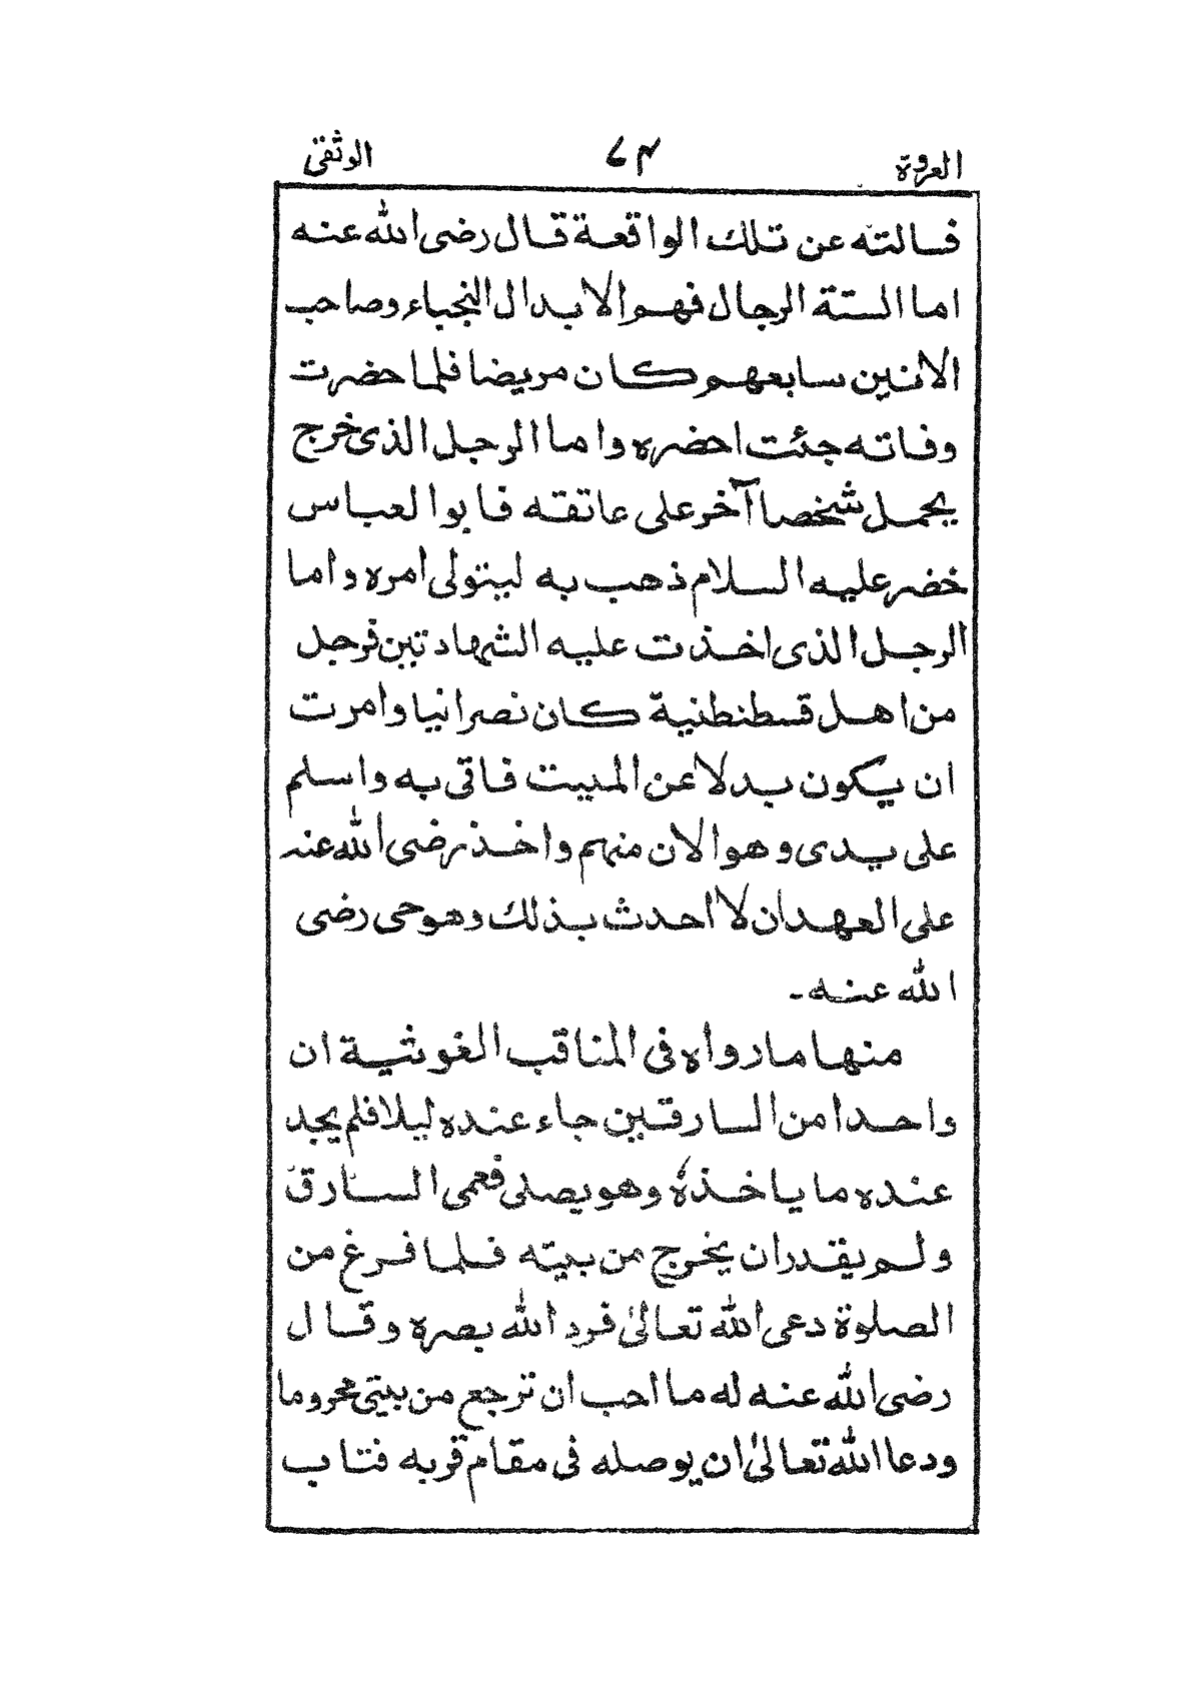 العروة ٧٤ الوثقى
فسالته عن تلك الواقعة قال رضى الله عنه
اما الستة الرجال فهم الابدال النجباء وصاحب
الانين سابعهم كان مريضا فلما حضرت
وفاته جئت احضره واما الرجل الذى خرج
يحمل شخصا آخر على عاتقه فابوا لعباس
خضر عليه السلام ذهب به ليتولى امره واما
الرجل الذى اخذت عليه الشهادتين فرجل
من اهل قسطنطنية كان نصرانيا وامرت
ان يكون بدلا عن الميت فاتى به واسلم
على يدى وهو الان منهم واخذ رضى الله عنه
على العهد ان لا احدث بذلك وهو حى رضى
الله عنه ۔
منها ما رواه فى المناقب الغوثية ان
واحدا من السارقين جاء عنده ليلا فلم يجد
عنده ما ياخذهٗ وهو يصلى فعمى السارق
ولم يقدر ان يخرج من بيته فلما فرغ من
الصلوة دعى الله تعالىٰ فرد الله بصره وقال
رضى الله عنه له ما احب ان ترجع من بيتى محروما
ودعا الله تعالىٰ ان يوصله فى مقام قربه فتاب